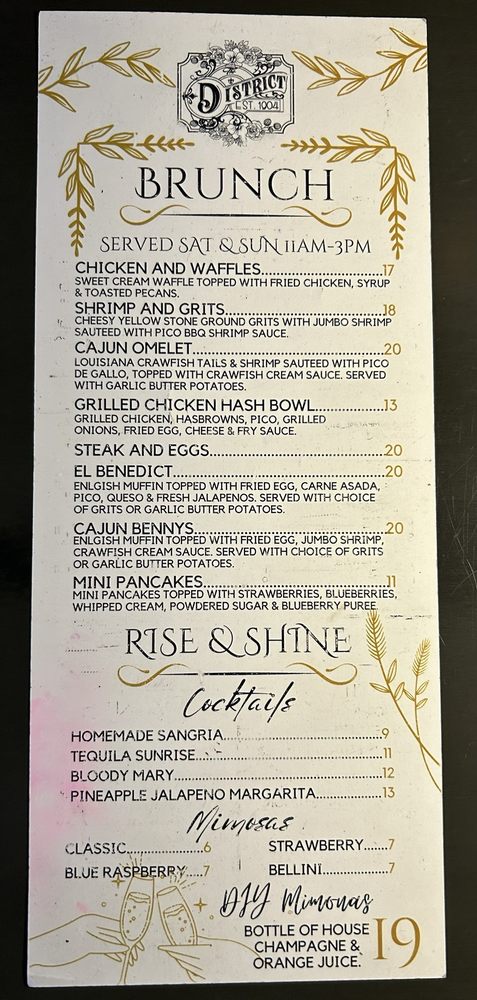 DISTRICT
EST. 1904
BRUNCH
SERVED SAT & SUN 11AM-3PM
CHICKEN AND WAFFLES..............................17
SWEET CREAM WAFFLE TOPPED WITH FRIED CHICKEN, SYRUP
& TOASTED PECANS.
SHRIMP AND GRITS.......................................18
CHEESY YELLOW STONE GROUND GRITS WITH JUMBO SHRIMP
SAUTEED WITH PICO BBQ SHRIMP SAUCE.
CAJUN OMELET..............................................20
LOUISIANA CRAWFISH TAILS & SHRIMP SAUTEED WITH PICO
DE GALLO, TOPPED WITH CRAWFISH CREAM SAUCE. SERVED
WITH GARLIC BUTTER POTATOES.
GRILLED CHICKEN HASH BOWL.................13
GRILLED CHICKEN, HASBROWNS, PICO, GRILLED
ONIONS, FRIED EGG, CHEESE & FRY SAUCE.
STEAK AND EGGS..........................................20
EL BENEDICT...................................................20
ENLGISH MUFFIN TOPPED WITH FRIED EGG, CARNE ASADA,
PICO, QUESO & FRESH JALAPENOS. SERVED WITH CHOICE
OF GRITS OR GARLIC BUTTER POTATOES.
CAJUN BENNYS..............................................20
ENLGISH MUFFIN TOPPED WITH FRIED EGG, JUMBO SHRIMP,
CRAWFISH CREAM SAUCE. SERVED WITH CHOICE OF GRITS
OR GARLIC BUTTER POTATOES.
MINI PANCAKES............................................11
MINI PANCAKES TOPPED WITH STRAWBERRIES, BLUEBERRIES,
WHIPPED CREAM, POWDERED SUGAR & BLUEBERRY PUREE.
RISE & SHINE
Cocktails
HOMEMADE SANGRIA.......................................9
TEQUILA SUNRISE..............................................11
BLOODY MARY...................................................12
PINEAPPLE JALAPENO MARGARITA................13
Mimosas
CLASSIC...................6 STRAWBERRY.......7
BLUE RASPBERRY.....7 BELLINI................7
DIY Mimosas
BOTTLE OF HOUSE
CHAMPAGNE &
ORANGE JUICE.
19